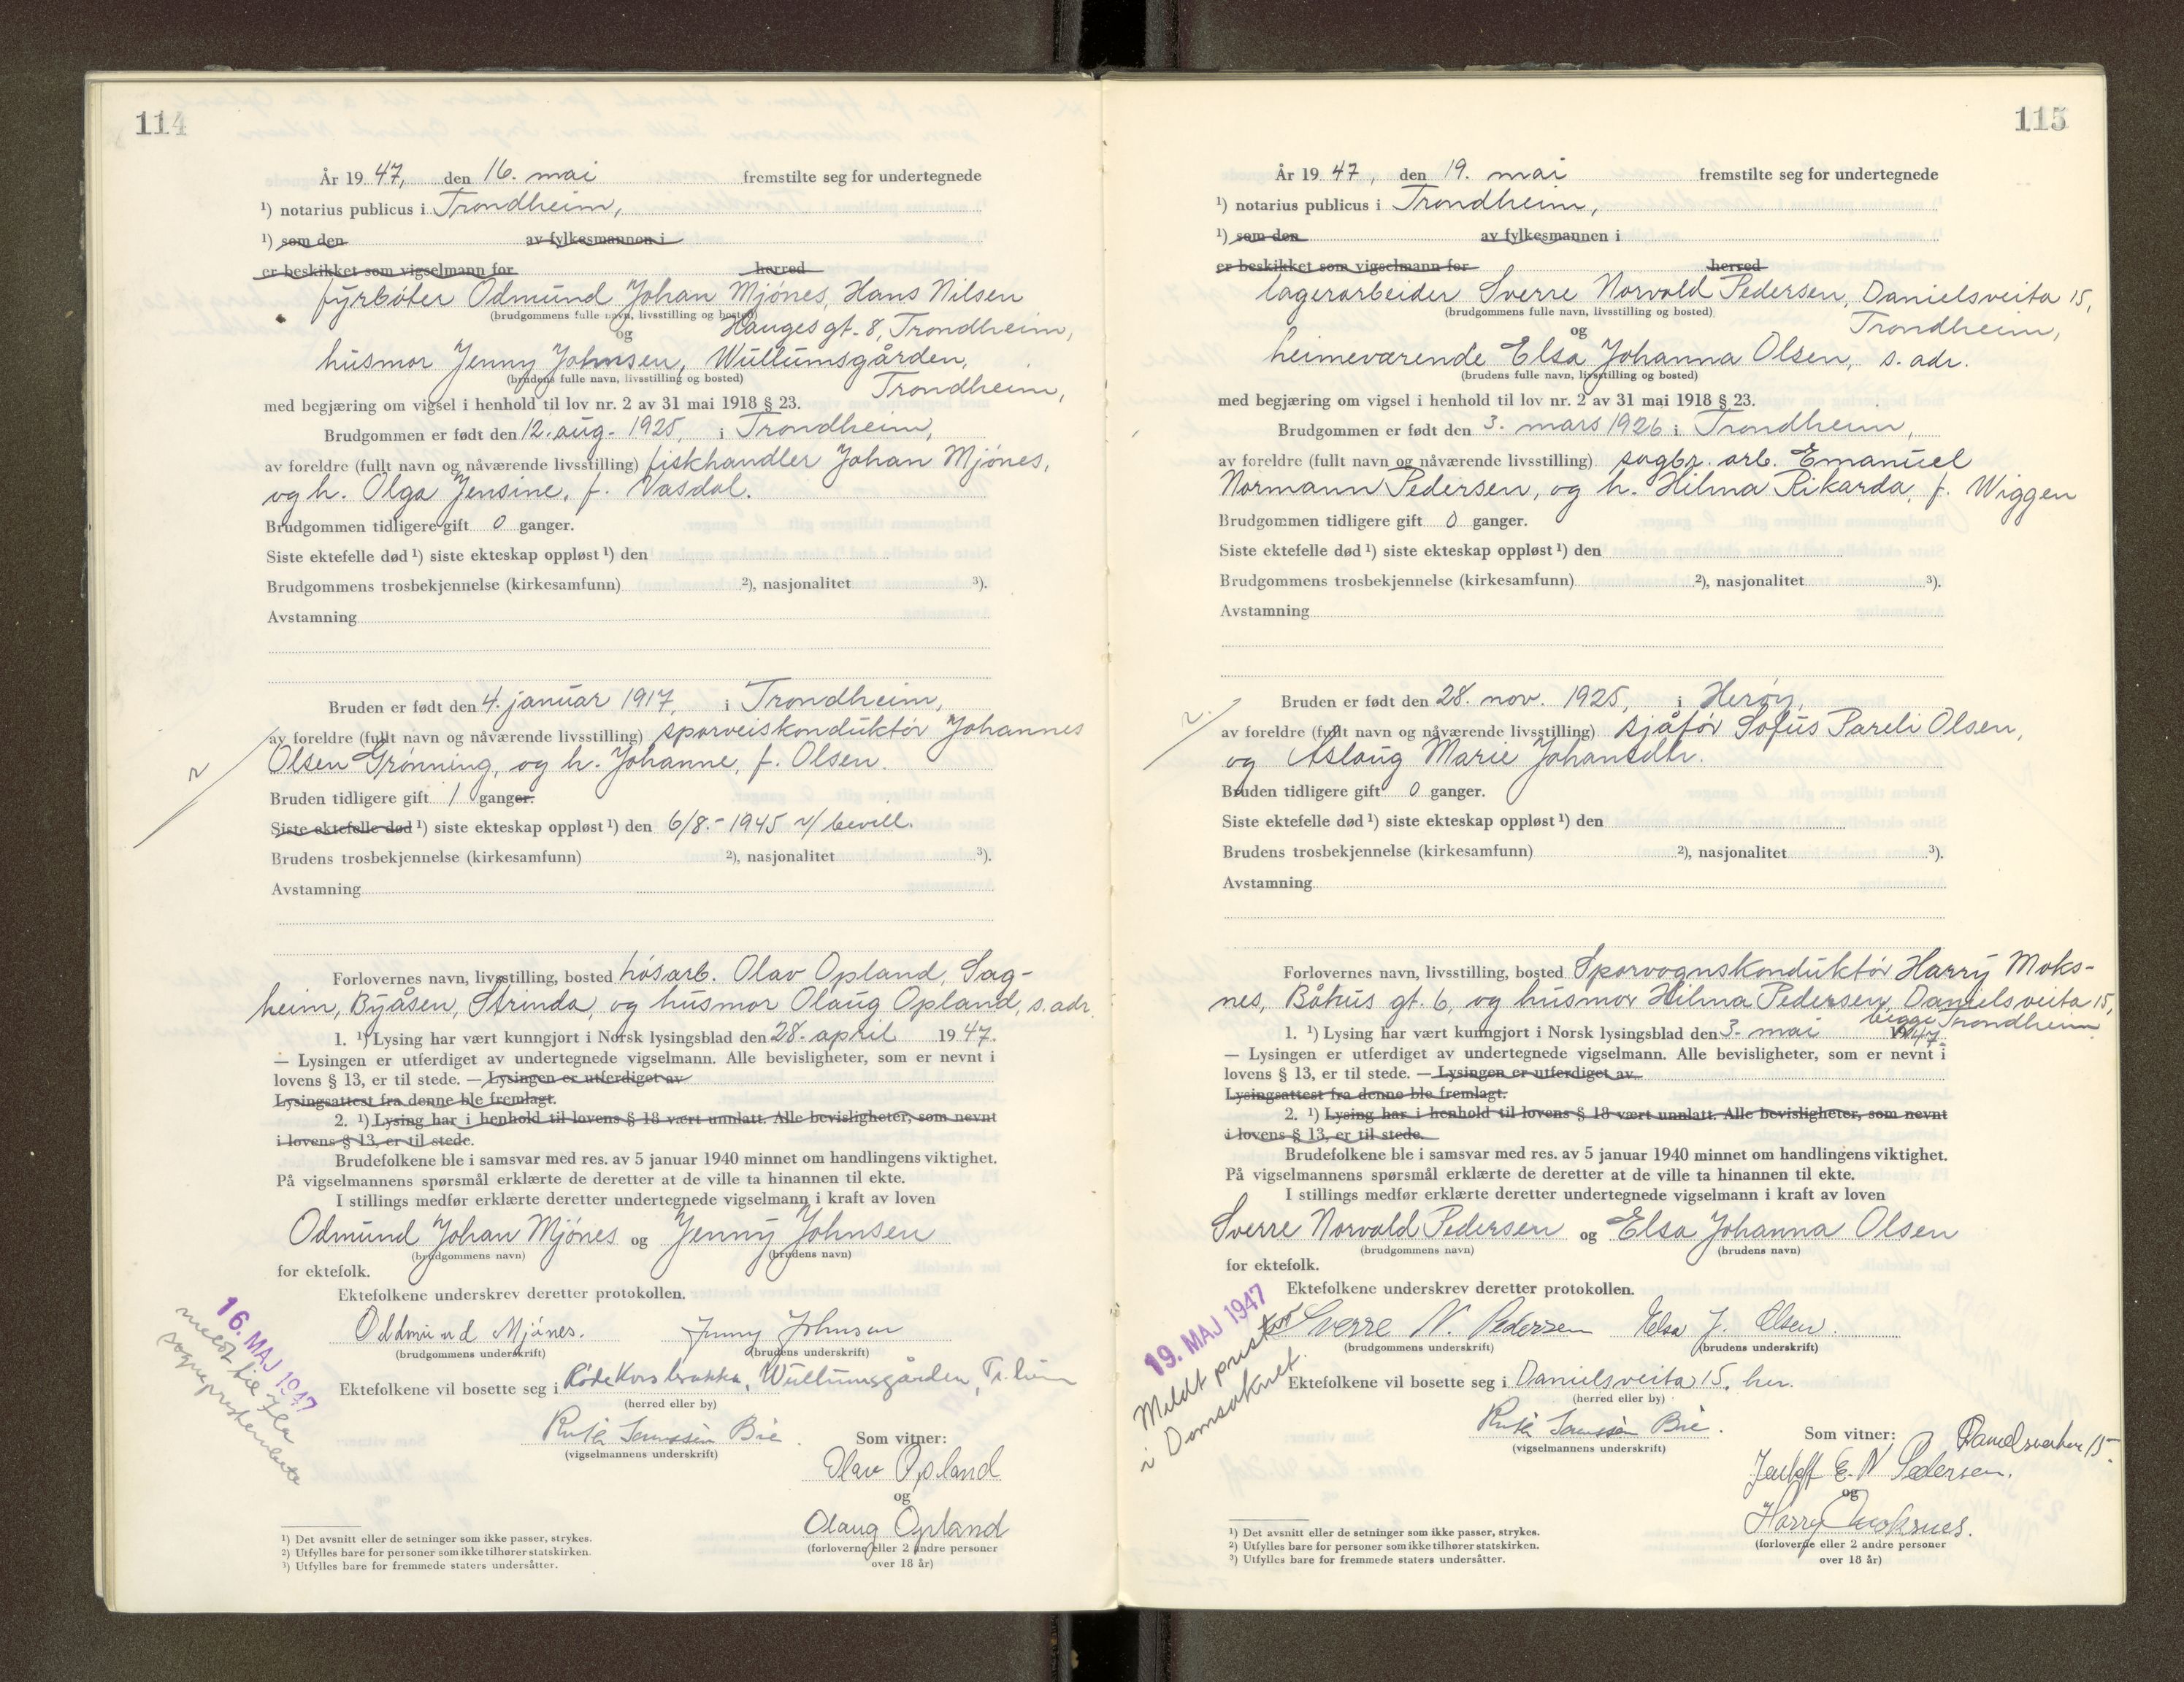 114
År 19 47, den 16. mai fremstilte seg for undertegnede
¹) notarius publicus i Trondheim,
¹) som den av fylkesmannen i
er beskikket som vigselmann for herred
fyrbøter Odmund Johan Mjönes, Hans Nilsen
(brudgommens fulle navn, livsstilling og bosted)
og Hauges gt. 8, Trondheim,
husmor Jenny Johnsen, Wullumsgården,
(brudens fulle navn, livsstilling og bosted)
Trondheim,
med begjæring om vigsel i henhold til lov nr. 2 av 31 mai 1918 § 23.
Brudgommen er født den 12. aug. 1925, i Trondheim,
av foreldre (fullt navn og nåværende livsstilling) fiskhandler Johan Mjönes,
og h. Olga Jensine, f. Vasdal.
Brudgommen tidligere gift 0 ganger.
Siste ektefelle død ¹) siste ekteskap oppløst ¹) den
Brudgommens trosbekjennelse (kirkesamfunn) ²), nasjonalitet ³).
Avstamning
Bruden er født den 4. januar 1917, i Trondheim,
av foreldre (fullt navn og nåværende livsstilling) sporveiskonduktör Johannes
Olsen Grönning, og h. Johanne, f. Olsen.
Bruden tidligere gift 1 ganger.
Siste ektefelle død ¹) siste ekteskap oppløst ¹) den 6/8.- 1945 v/ bevill.
Brudens trosbekjennelse (kirkesamfunn) ²), nasjonalitet ³).
Avstamning
Forlovernes navn, livsstilling, bosted hósarb. Olav Opland, Sag-
heim, Byåsen, Strinda, og husmor Olaug Opland, s. adr.
1. ¹) Lysing har vært kunngjort i Norsk lysingsblad den 28. april 19 47.
— Lysingen er utferdiget av undertegnede vigselmann. Alle bevisligheter, som er nevnt i
lovens § 13, er til stede. — Lysingen er utferdiget av
Lysingsattest fra denne ble fremlagt.
2. ¹) Lysing har i henhold til lovens § 18 vært unnlatt. Alle bevisligheter, som nevnt
i lovens § 13, er til stede.
Brudefolkene ble i samsvar med res. av 5 januar 1940 minnet om handlingens viktighet.
På vigselmannens spørsmål erklærte de deretter at de ville ta hinannen til ekte.
I stillings medfør erklærte deretter undertegnede vigselmann i kraft av loven
Odmund Johan Mjönes og Jenny Johnsen
(brudgommens navn) (brudens navn)
for ektefolk.
Ektefolkene underskrev deretter protokollen.
16. MAJ 1947
meldt til Ila
sogneprestembete
Oddmund Mjönes. Jenny Johnsen
(brudgommens underskrift) (brudens underskrift)
Ektefolkene vil bosette seg i Röde Kors brakka, Wullumsgården, Tr.heim
(herred eller by)
Ruth Bie.
(vigselmannens underskrift)
Som vitner:
Olav Opland
og
Olaug Opland
(forloverne eller 2 andre personer
over 18 år)
¹) Det avsnitt eller de setninger som ikke passer, strykes.
²) Utfylles bare for personer som ikke tilhører statskirken.
³) Utfylles bare for fremmede staters undersåtter.
115
År 19 47, den 19. mai fremstilte seg for undertegnede
¹) notarius publicus i Trondheim,
¹) som den av fylkesmannen i
er beskikket som vigselmann for herred
lagerarbeider Sverre Norvald Pedersen, Danielsveita 15,
(brudgommens fulle navn, livsstilling og bosted)
og Trondheim,
heimeværende Elsa Johanna Olsen, s. adr.
(brudens fulle navn, livsstilling og bosted)
med begjæring om vigsel i henhold til lov nr. 2 av 31 mai 1918 § 23.
Brudgommen er født den 3. mars 1926 i Trondheim,
av foreldre (fullt navn og nåværende livsstilling) sagbr. arb. Emanuel
Normann Pedersen, og h. Hilma Rikarda, f. Wiggen
Brudgommen tidligere gift 0 ganger.
Siste ektefelle død ¹) siste ekteskap oppløst ¹) den
Brudgommens trosbekjennelse (kirkesamfunn) ²), nasjonalitet ³).
Avstamning
Bruden er født den 28. nov. 1925, i Heröy,
av foreldre (fullt navn og nåværende livsstilling) sjåför Sofus Pareli Olsen,
og Aslaug Marie Johansdtr.
Bruden tidligere gift 0 ganger.
Siste ektefelle død ¹) siste ekteskap oppløst ¹) den
Brudens trosbekjennelse (kirkesamfunn) ²), nasjonalitet ³).
Avstamning
Forlovernes navn, livsstilling, bosted Sporvognskonduktör Harry Moks-
nes, Båhus gt. 6, og husmor Hilma Pedersen, Danielsveita 15,
begge Trondheim
1. ¹) Lysing har vært kunngjort i Norsk lysingsblad den 3. mai 1947.
— Lysingen er utferdiget av undertegnede vigselmann. Alle bevisligheter, som er nevnt i
lovens § 13, er til stede. — Lysingen er utferdiget av
Lysingsattest fra denne ble fremlagt.
2. ¹) Lysing har i henhold til lovens § 18 vært unnlatt. Alle bevisligheter, som nevnt
i lovens § 13, er til stede.
Brudefolkene ble i samsvar med res. av 5 januar 1940 minnet om handlingens viktighet.
På vigselmannens spørsmål erklærte de deretter at de ville ta hinannen til ekte.
I stillings medfør erklærte deretter undertegnede vigselmann i kraft av loven
Sverre Norvald Pedersen og Elsa Johanna Olsen
(brudgommens navn) (brudens navn)
for ektefolk.
Ektefolkene underskrev deretter protokollen.
19. MAJ 1947
Meldt presten
i Domsoknet.
Sverre N. Pedersen Elsa J. Olsen.
(brudgommens underskrift) (brudens underskrift)
Ektefolkene vil bosette seg i Danielsveita 15, her.
(herred eller by)
Ruth Bie.
(vigselmannens underskrift)
Som vitner: Danielsveiten 15.
E. N Pedersen.
og
Harry Moksnes.
(forloverne eller 2 andre personer
over 18 år)
¹) Det avsnitt eller de setninger som ikke passer, strykes.
²) Utfylles bare for personer som ikke tilhører statskirken.
³) Utfylles bare for fremmede staters undersåtter.